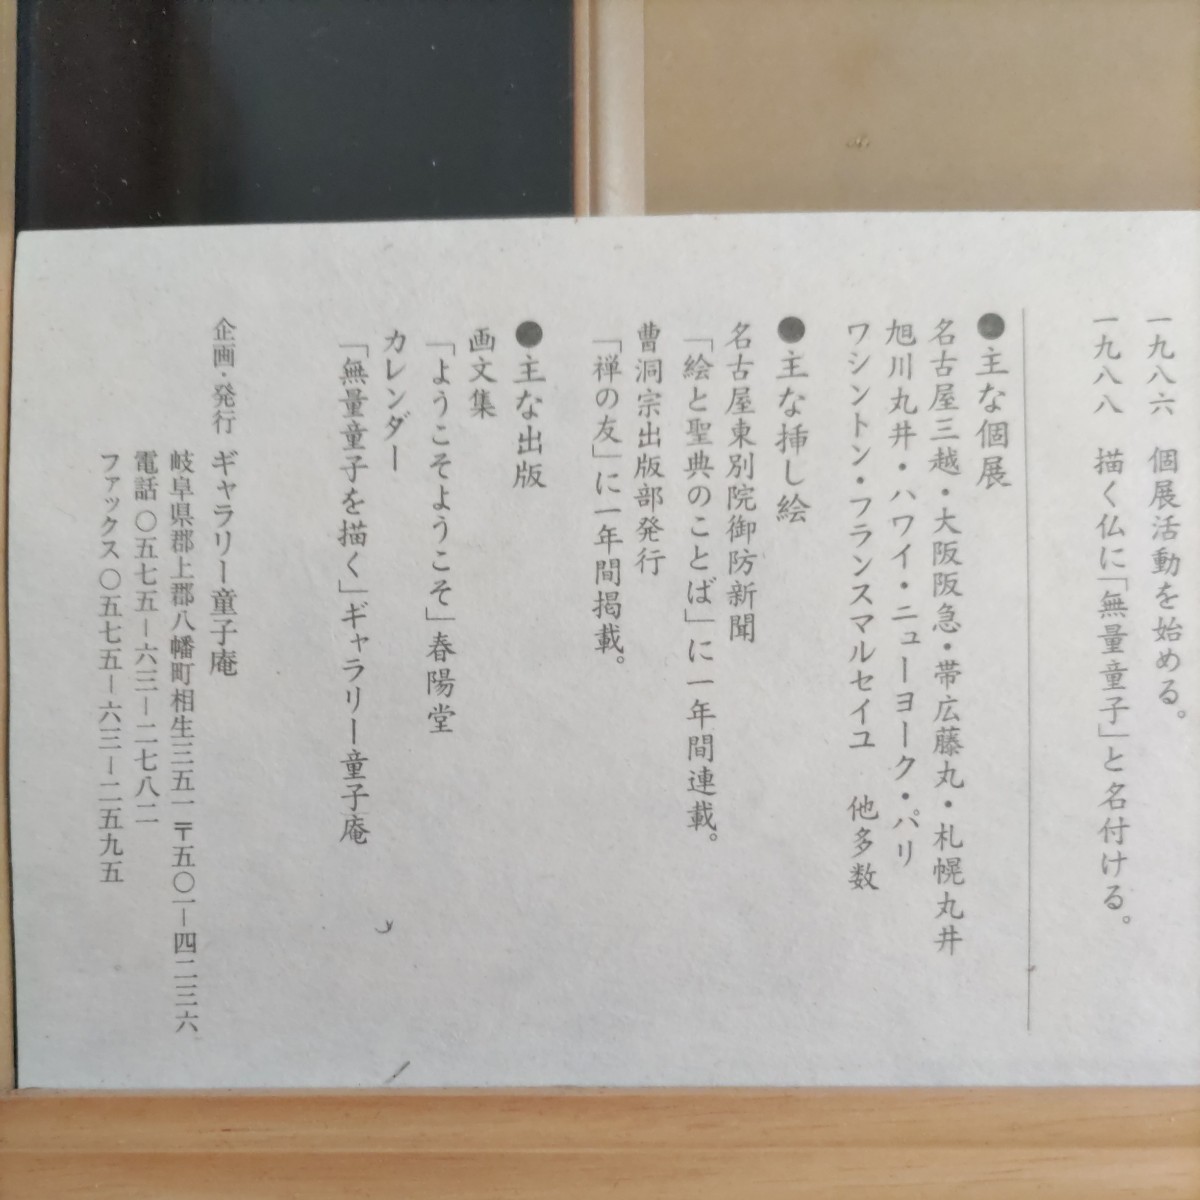 一九八六　個展活動を始める。
一九八八　描く仏に「無量童子」と名付ける。
●主な個展
名古屋三越・大阪阪急・帯広藤丸・札幌丸井
旭川丸井・ハワイ・ニューヨーク・パリ
ワシントン・フランスマルセイユ　他多数
●主な挿し絵
名古屋東別院御防新聞
「絵と聖典のことば」に一年間連載。
曹洞宗出版部発行
「禅の友」に一年間掲載。
●主な出版
画文集
「ようこそようこそ」春陽堂
カレンダー
「無量童子を描く」ギャラリー童子庵
企画・発行　ギャラリー童子庵
岐阜県郡上郡八幡町相生三五一 〒五〇一−四二三六
電話〇五七五−六三−二七八二
ファックス〇五七五−六三−二五九五